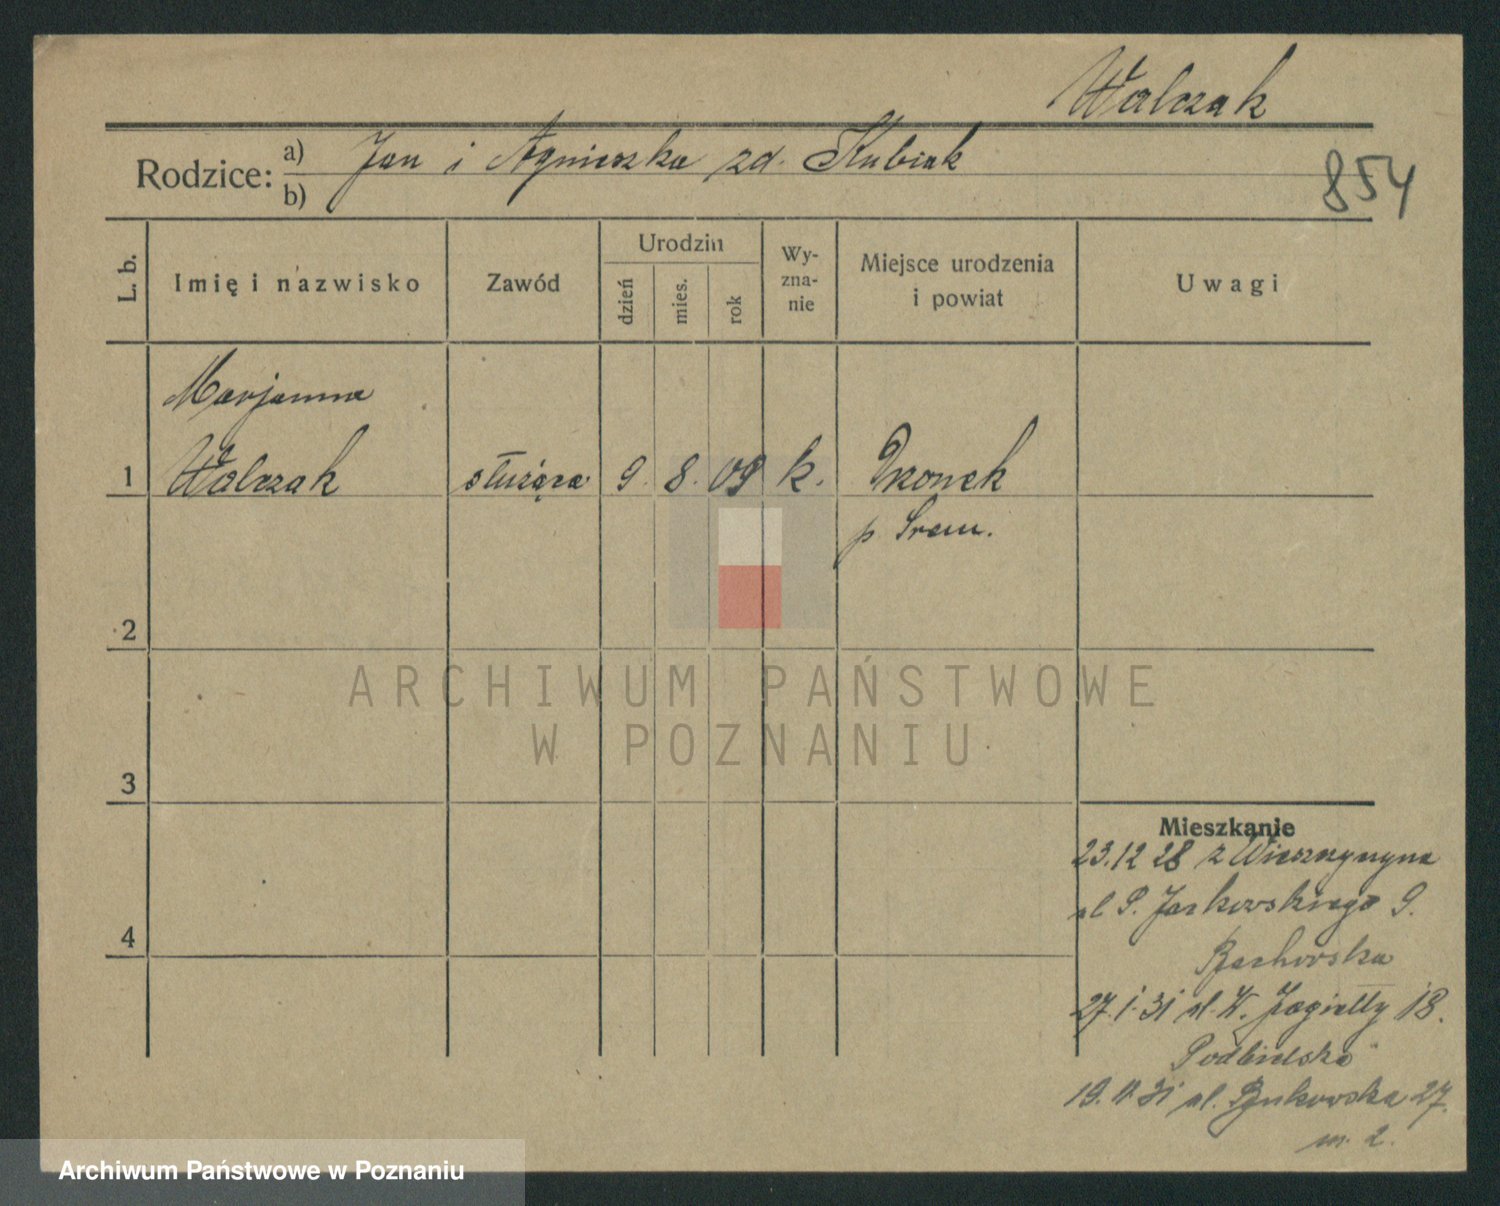 Walczak
Rodzice: a) Jan i Agnieszka zd. Kubiak
b)
854
L. b.
Imię i nazwisko
Zawód
Urodzin
dzień
mies.
rok
Wy-
zna-
nie
Miejsce urodzenia
i powiat
Uwagi
Marjanna
1 Walczak służąca 9. 8. 09 k.
p Śrem.
2
3
4
ARCHIWUM PAŃSTWOWE
W POZNANIU
Mieszkanie
23.12 28 z
ul P. 9.
27.1.31 ul. W. Jagiełły 18.
Podbielska
19. 11 31 ul. Bukowska 27.
m. 2.
Archiwum Państwowe w Poznaniu